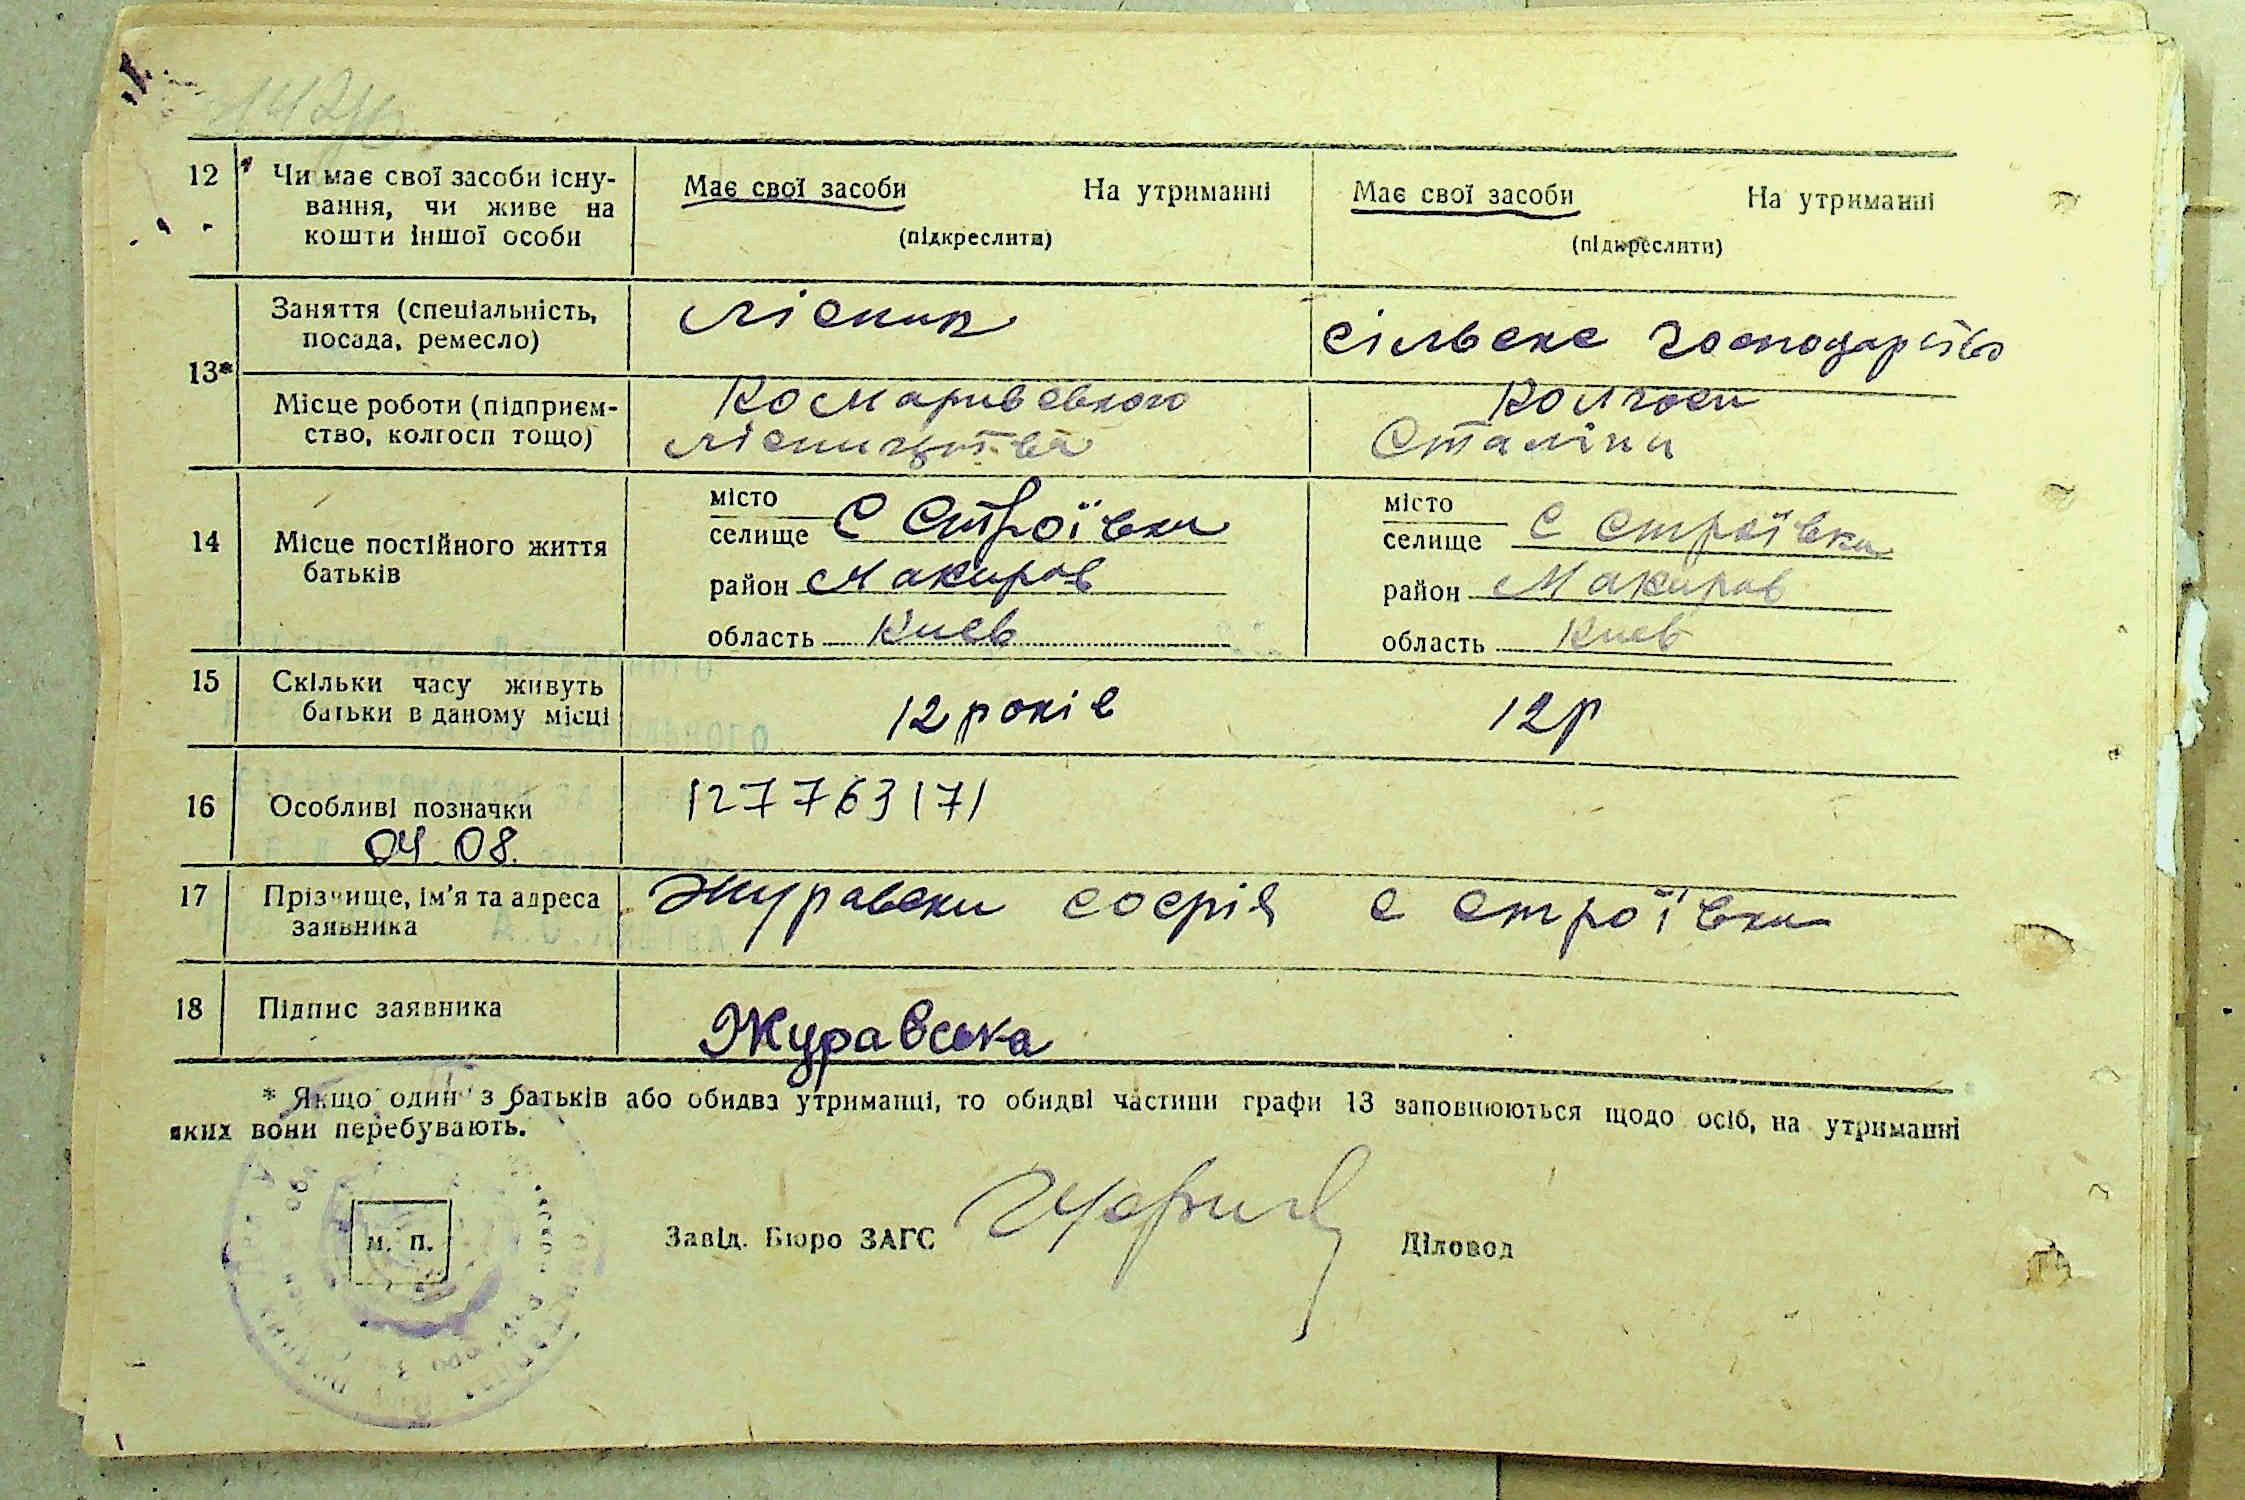 12 Чи має свої засоби існу-
вання, чи живе на
кошти іншої особи
Має свої засоби На утриманні
(підкреслити)
Має свої засоби На утриманні
(підкреслити)
13*
Заняття (спеціальність,
посада, ремесло)
лісник
сільске господарство
Місце роботи (підприєм-
ство, колгосп тощо)
Комаривсвкого
лісництва
Колгосп
Сталіни
14 Місце постійного життя
батьків
місто
селище С Строївка
район Макиров
область Киев
місто
селище С Строївка
район Макиров
область Киев
15 Скільки часу живуть
батьки в даному місці
12 років
12р
16 Особливі позначки
04.08.
127763171
17 Прізвище, ім'я та адреса
заявника
Журавски софія с строївка
18 Підпис заявника
Журавська
* Якщо один з батьків або обидва утриманці, то обидві частини графи 13 заповнюються щодо осіб, на утриманні
яких вони перебувають.
м. п.
Завід. Бюро ЗАГС
Діловод